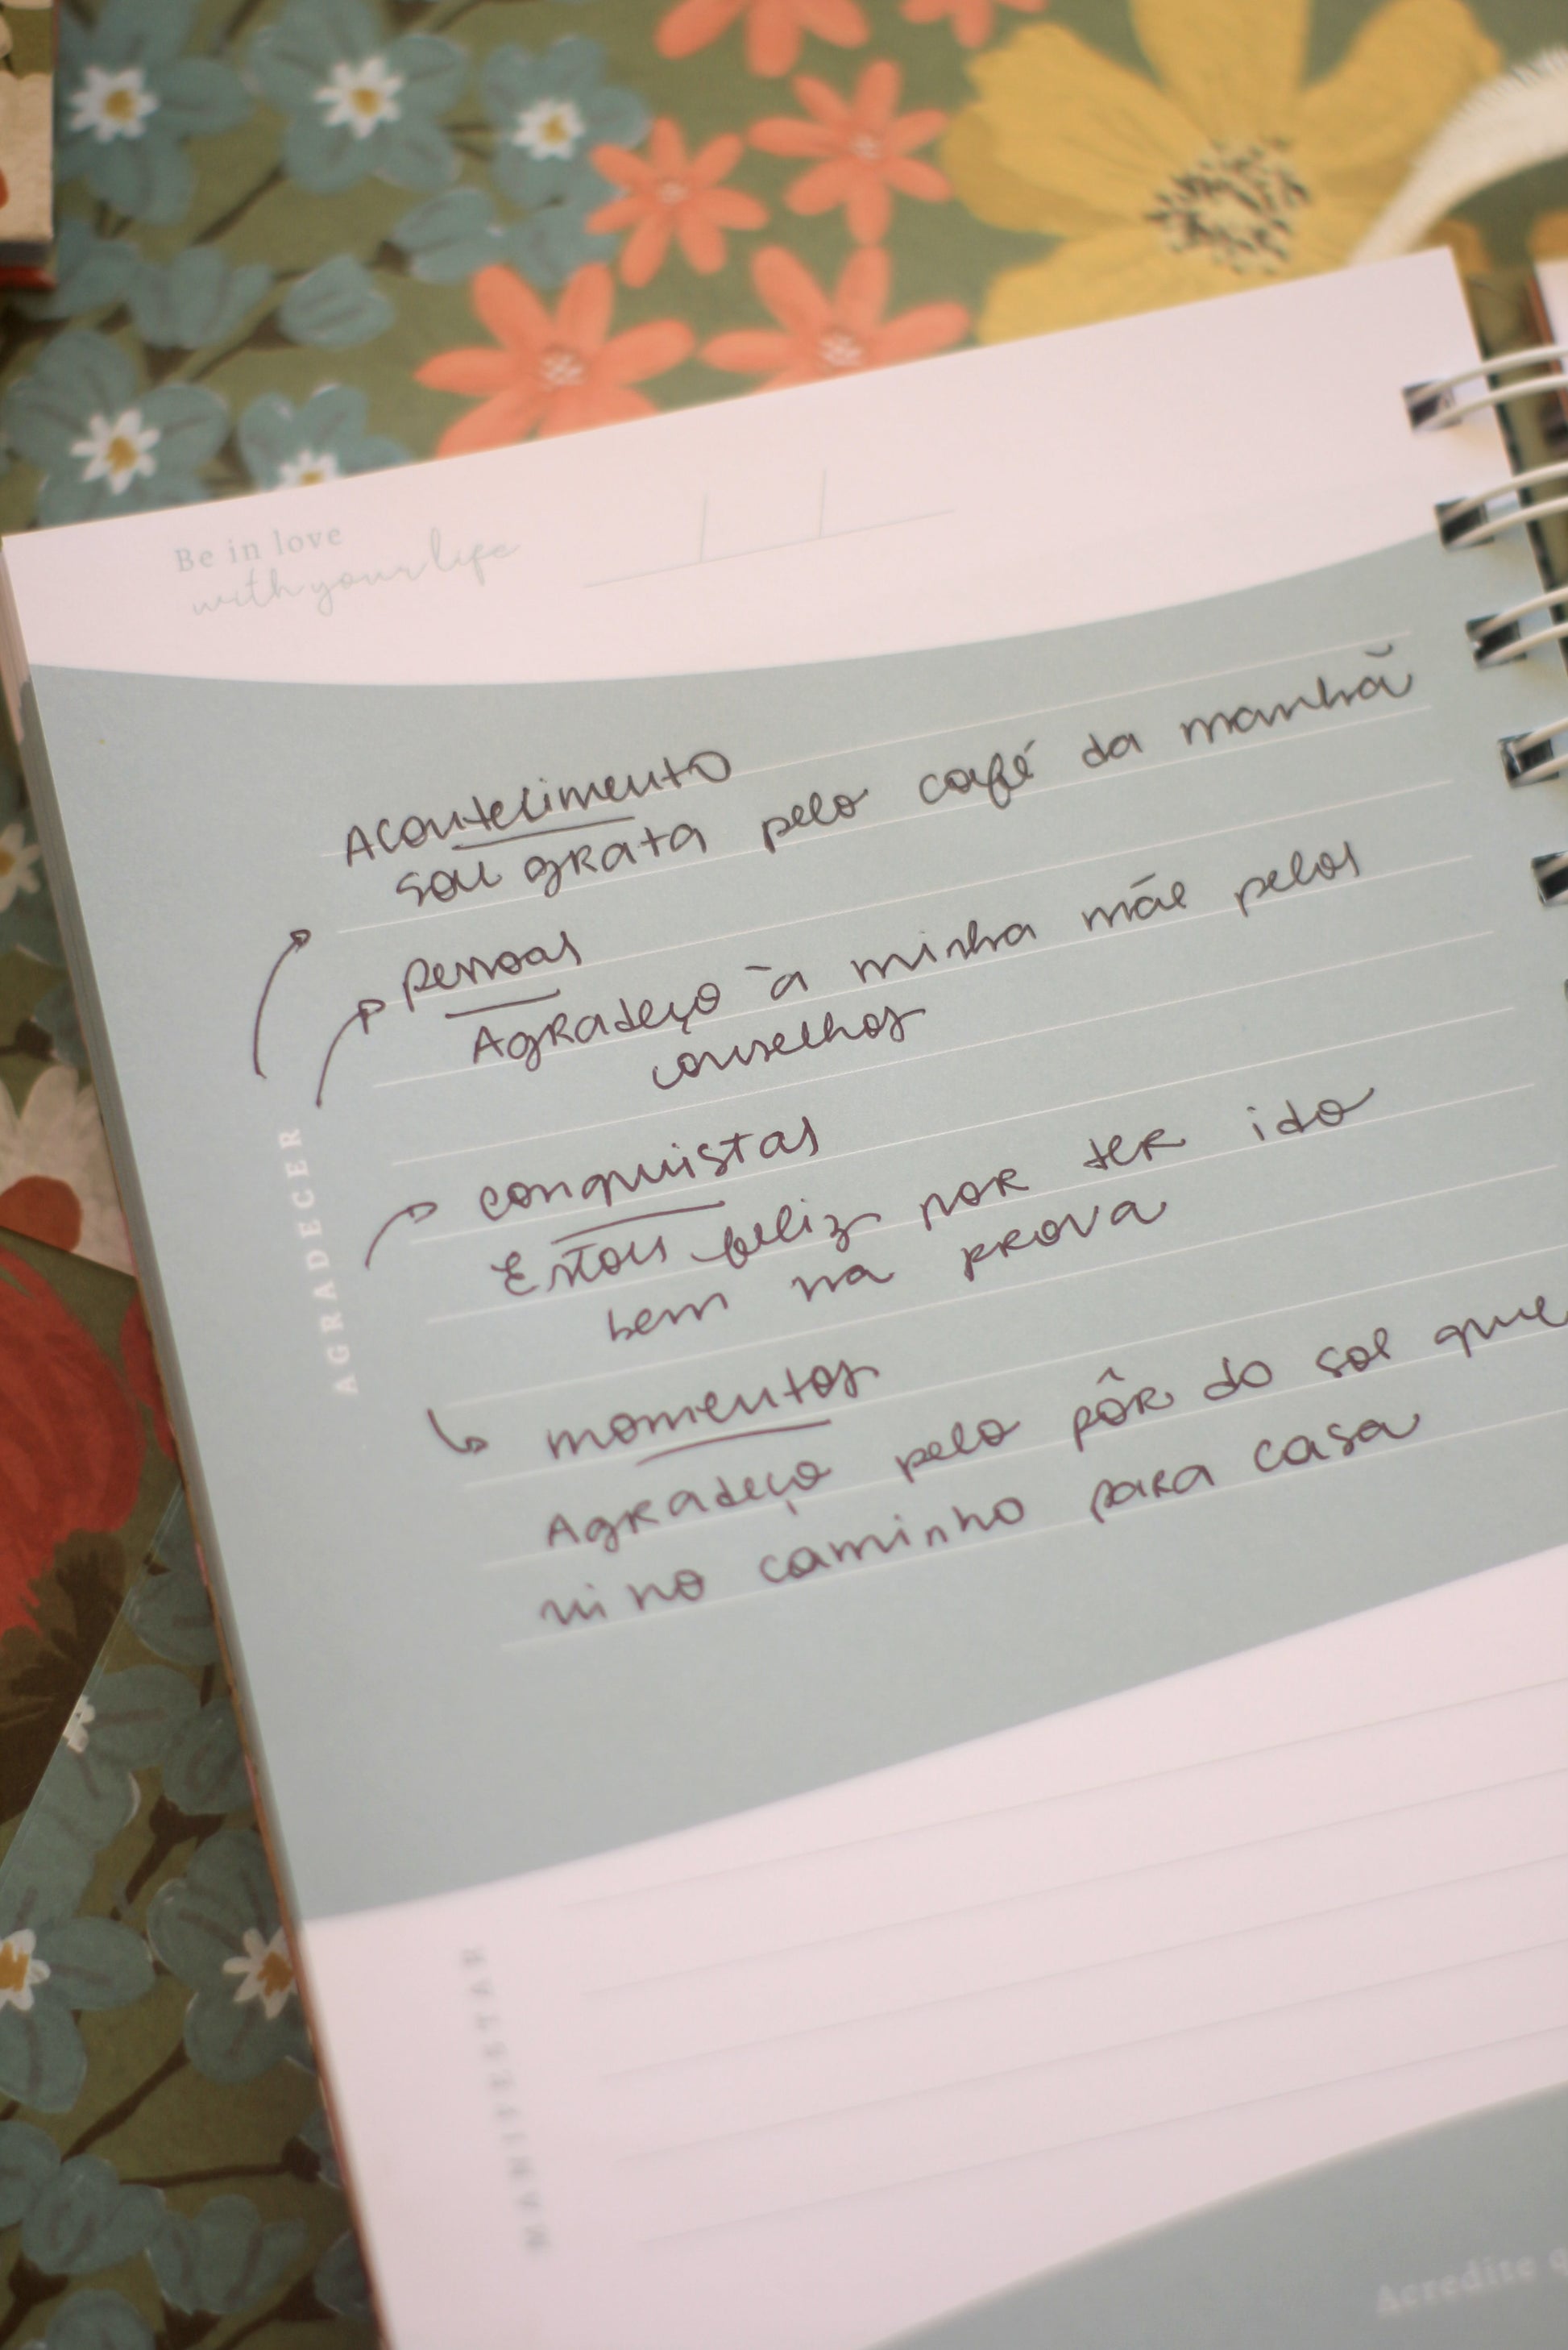 Be in love
with your life
Acontecimento
sou grata pelo café da manhã
pessoas
Agradeço à minha mãe pelos
conselhos
conquistas
Estou feliz por ter ido
bem na prova
momentos
Agradeço pelo pôr do sol que
vi no caminho para casa
AGRADECER
MANIFESTAR
Acredite q